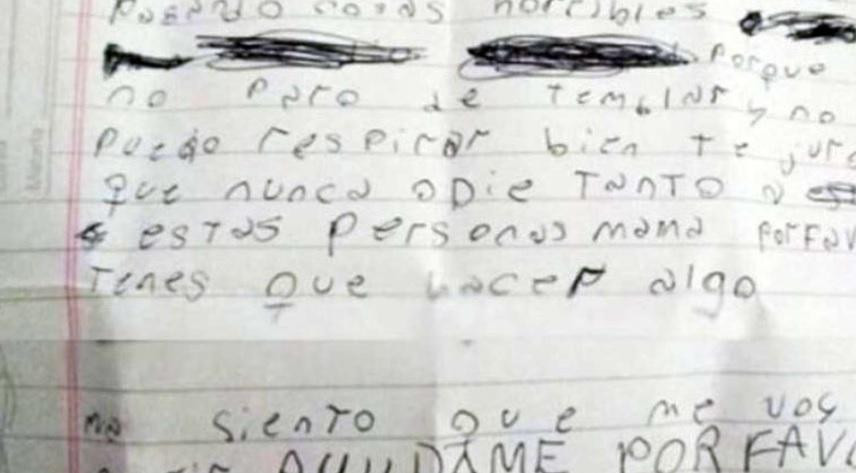 cosas horribles
Porque
no paro de temblar y no
puedo respirar bien te
que nunca odie tanto a
estas personas mama
tenes que hacer algo
siento que me voy
AYUDAME POR